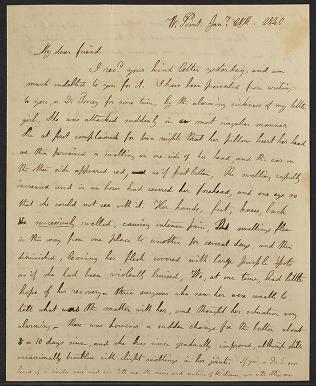 W. Point Jany 28th. 1840
My dear friend
I recd yours kind letter yesterday, and am
much indebted to you for it. I have been prevented from writing
to you, or Dr Torrey for some time, by the alarming sickness of my little
girl, She was attacked suddenly in a most singular manner
She at first complained for two nights that her pillow hurt her head
we then perceived a swelling on one side of her head, and the ear on
the other side appeared red, as if frost bitten, The swelling rapidly
increased and in an hour had covered her forehead, and one eye so
that she could not see with it. Her hands, feet, knees, back
successively swelled, causing intense pain, The swellings flew
in this way from one place to another for several days, and then
diminished, leaving her flesh covered with large purple spots
as if she had been violently bruised, We, at one time, had little
hope of her recovery. three surgeons who saw her were unable to
tell what was the matter with her, and thought her situation very
alarming. There was however a sudden change for the better about
8 or 10 days since, and she has since gradually improved, although
occasionally troubled with slight swellings in her joints. If you or Dr T
of a similar case and can tell me the name and nature of the disease,